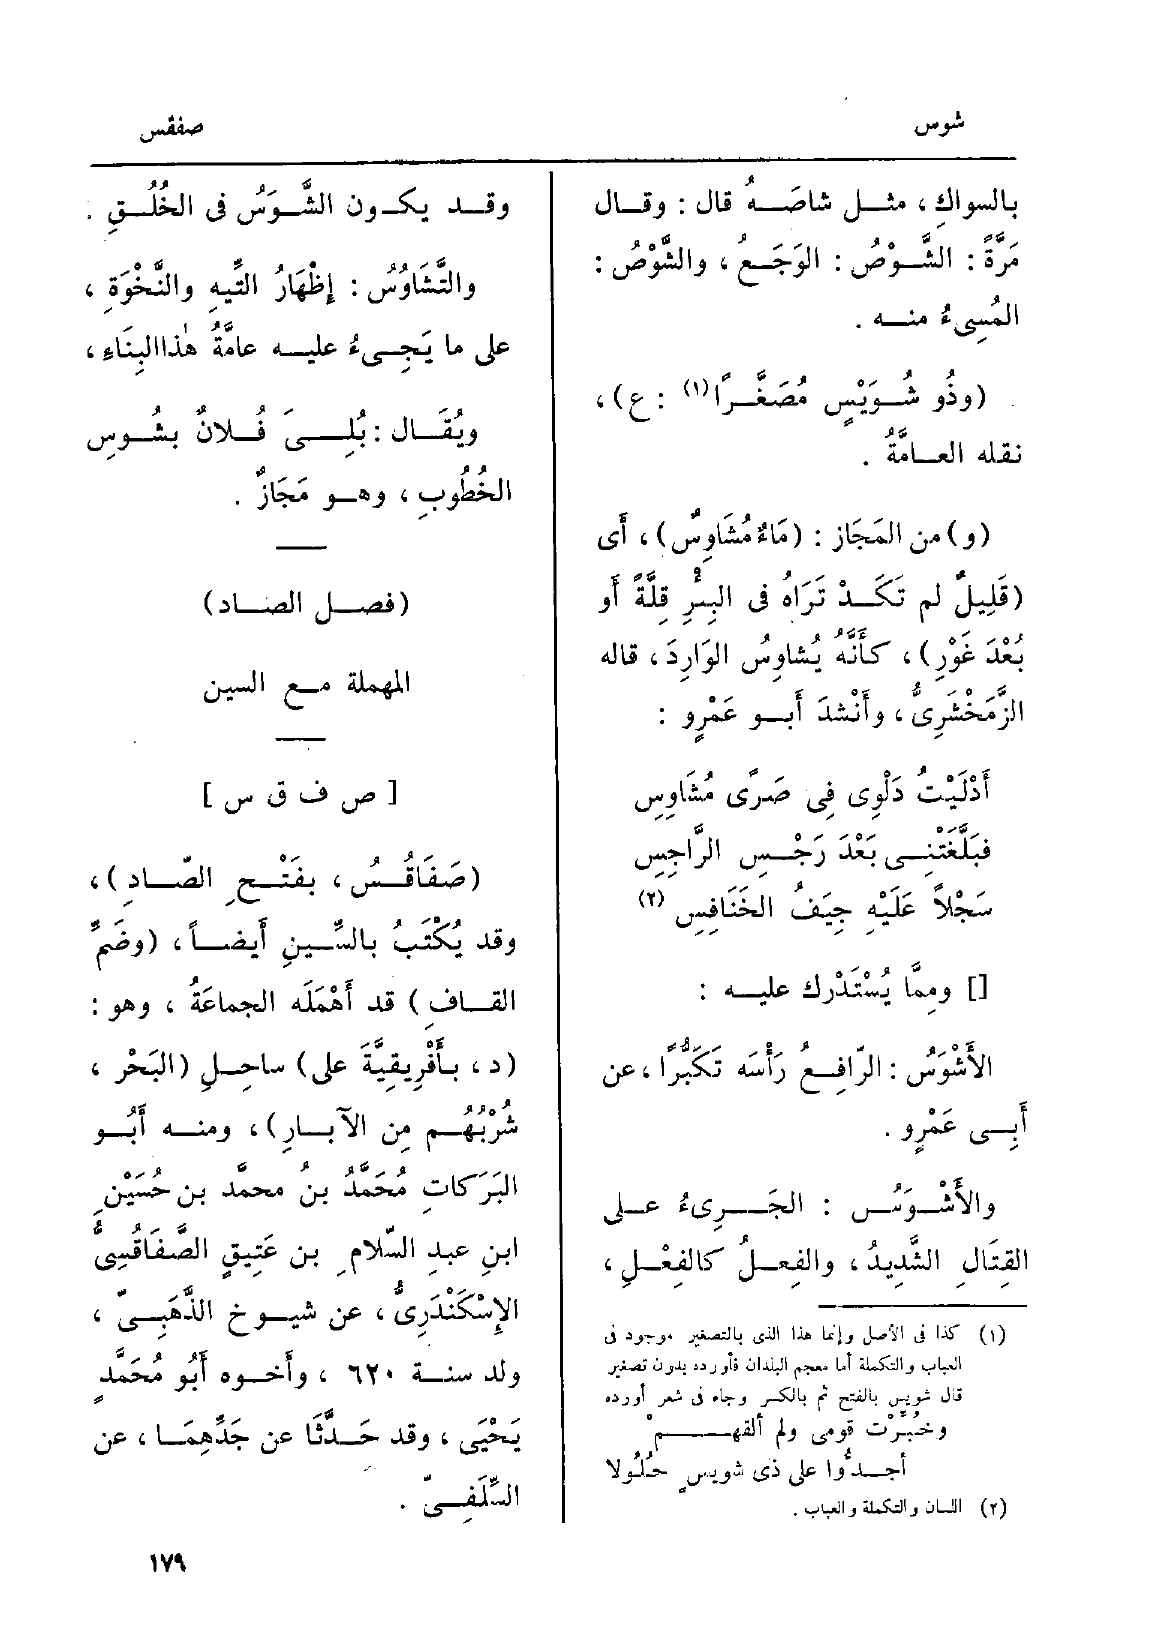 شوس
صفقس
بالسواكِ ، مثل شاصَهُ قال : وقال
مَرَّةً : الشَّوْصُ : الوَجَعُ ، والشَّوْصُ :
المُسِىءُ منه .
(وذُو شُوَيْسٍ مُصَغَّرًا (١) : ع) ،
نقله العامَّةُ .
(و) من المَجَاز : (مَاءٌ مُشَاوِسٌ) ، أَى
(قَلِيلٌ لم تَكَدْ تَرَاهُ فى البِئْرِ قِلَّةً أَو
بُعْدَ غَوْرٍ) ، كأَنَّهُ يُشاوِسُ الوَارِدَ ، قاله
الزَّمَخْشَرِىُّ ، وأَنْشدَ أَبو عَمْرٍو :
أَدْلَيْتُ دَلْوِى فِى صَرًى مُشَاوِسِ
فبَلَّغَتْنِى بَعْدَ رَجْسِ الرَّاجِسِ
سَجْلاً عَلَيْهِ جِيَفُ الخَنَافِسِ (٢)
[] ومِمَّا يُسْتَدْرك عليه :
الأَشْوَسُ : الرّافِعُ رَأْسَه تَكَبُّرًا ، عن
أَبِى عَمْرٍو .
والأَشْوَسُ : الجَرِىءُ على
القِتَالِ الشَّدِيدُ ، والفِعلُ كالفِعْلِ ،
(١) كذا فى الأصل وإنما هذا الذى بالتصغير موجود فى
العباب والتكملة أما معجم البلدان فأورده بدون تصغير
قال شويس بالفتح ثم بالكسر وجاء فى شعر أورده
وخُبِّرْت قومى ولم ألقهمْ
أجدُّوا على ذى شويسٍ حُلُولا
(٢) اللسان والتكملة والعباب .
وقد يكون الشَّوَسُ فى الخُلُقِ .
والتَّشَاوُسُ : إِظْهَارُ التِّيهِ والنَّخْوَةِ ،
على ما يَجِىءُ عليه عامَّةُ هٰذا البِنَاءِ ،
ويُقَال : بُلِىَ فُلانٌ بشُوسِ
الخُطُوبِ ، وهو مَجَازٌ .
(فصل الصاد)
المهملة مع السين
[ ص ف ق س ]
(صَفَاقُسُ ، بفَتْحِ الصّادِ) ،
وقد يُكْتَبُ بالسِّينِ أَيضاً ، (وضَمِّ
القافِ) قد أَهْمَلَه الجماعَةُ ، وهو :
(د ، بأَفْرِيقِيَّةَ على) ساحِلِ (البَحْرِ ،
شُرْبُهُم مِن الآبارِ) ، ومنه أَبُو
البَرَكاتِ مُحَمَّدُ بنُ محمَّد بنِ حُسَيْنِ
ابنِ عبدِ السّلامِ بن عَتِيقٍ الصَّفَاقُسِىُّ
الإِسْكَنْدَرِىُّ ، عن شيوخ الذَّهَبِىّ ،
ولد سنة ٦٢٠ ، وأَخوه أَبُو مُحَمَّدٍ
يَحْيَى ، وقد حَدَّثَا عن جَدِّهِمَا ، عن
السِّلَفِىّ .
١٧٩